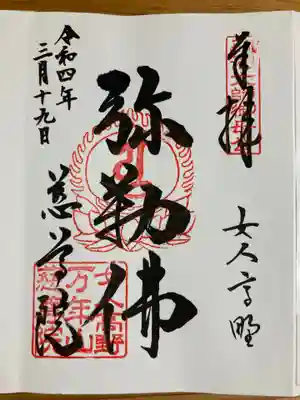 奉拝
女人高野
弥勒佛
慈尊院
令和四年
三月十九日
女人高野
万年山
慈尊院